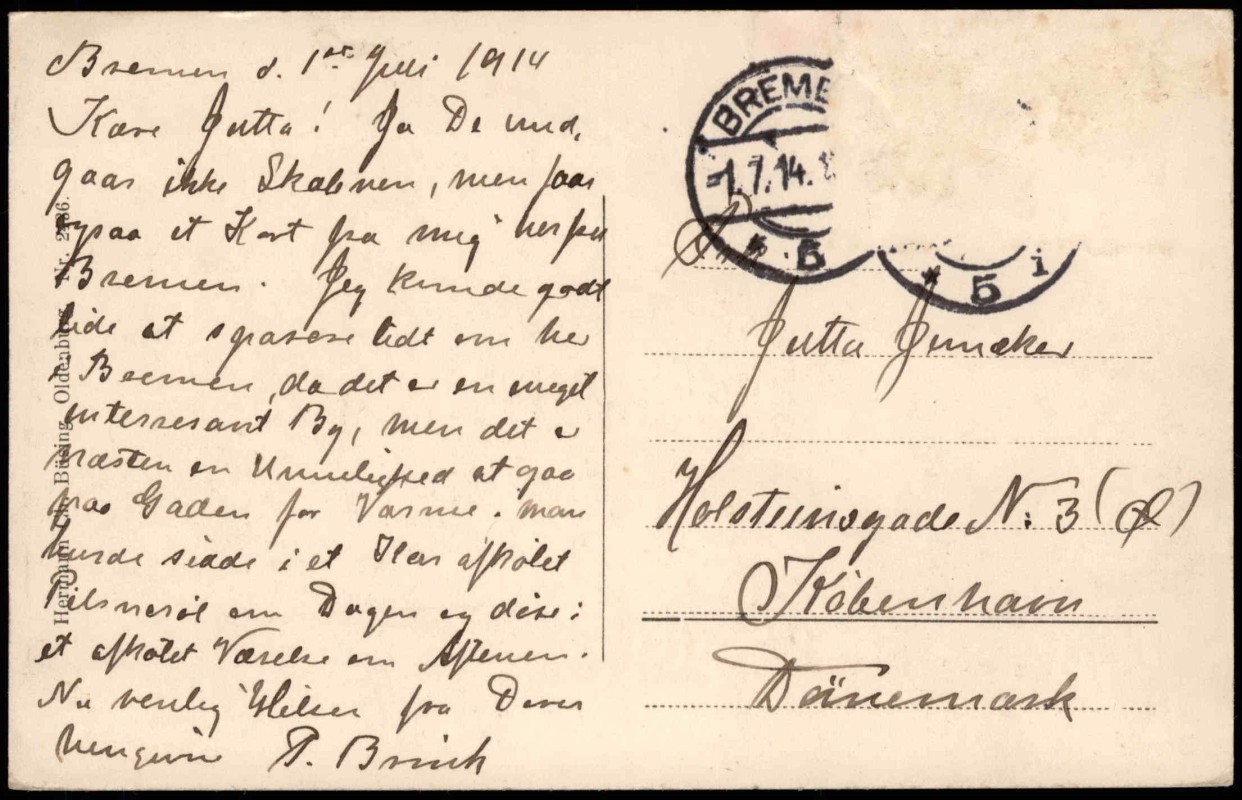 Bremen d. 1ste Juli 1914
Kære Jutta! Ja De und,
gaar ikke Skæbnen, men faar
ogsaa et Kort fra mig her fra
Bremen. Jeg kunde godt
lide at spasere lidt om her
i Bremen, da det er en meget
interresant By, men det er
næsten en Umulighed at gaa
paa Gaden for Varme. man
burde sidde i et Kar afkølet
Pilsnerøl om Dagen og disse i
et afkølet Værelse om Aftenen.
Nu venlig Hilsen fra Deres
hengivne P. Brink
Hermann Büsing, Oldenburg. Nr.
BREME
1.7.14.
* 5
* 5 i
Jutta Juncker
Holsteinsgade N: 3 (Ø)
København
Dänemark